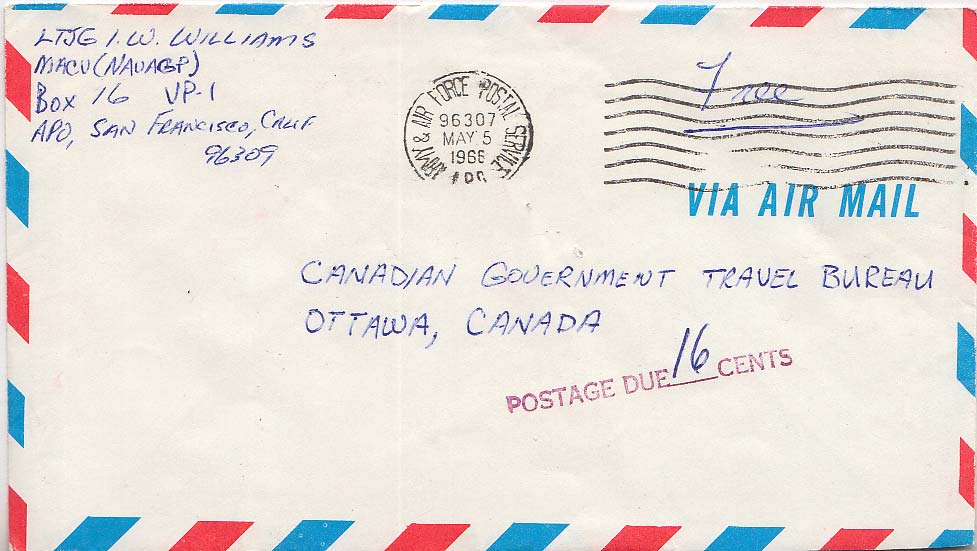 LTJG I. W. WILLIAMS
MACV (NAVAGP)
BOX 16 VP-1
APO, SAN FRANCISCO, CALIF
96309
ARMY & AIR FORCE POSTAL SERVICE
96307
MAY 5
1966
APO
Free
VIA AIR MAIL
CANADIAN GOVERNMENT TRAVEL BUREAU
OTTAWA, CANADA
POSTAGE DUE 16 CENTS